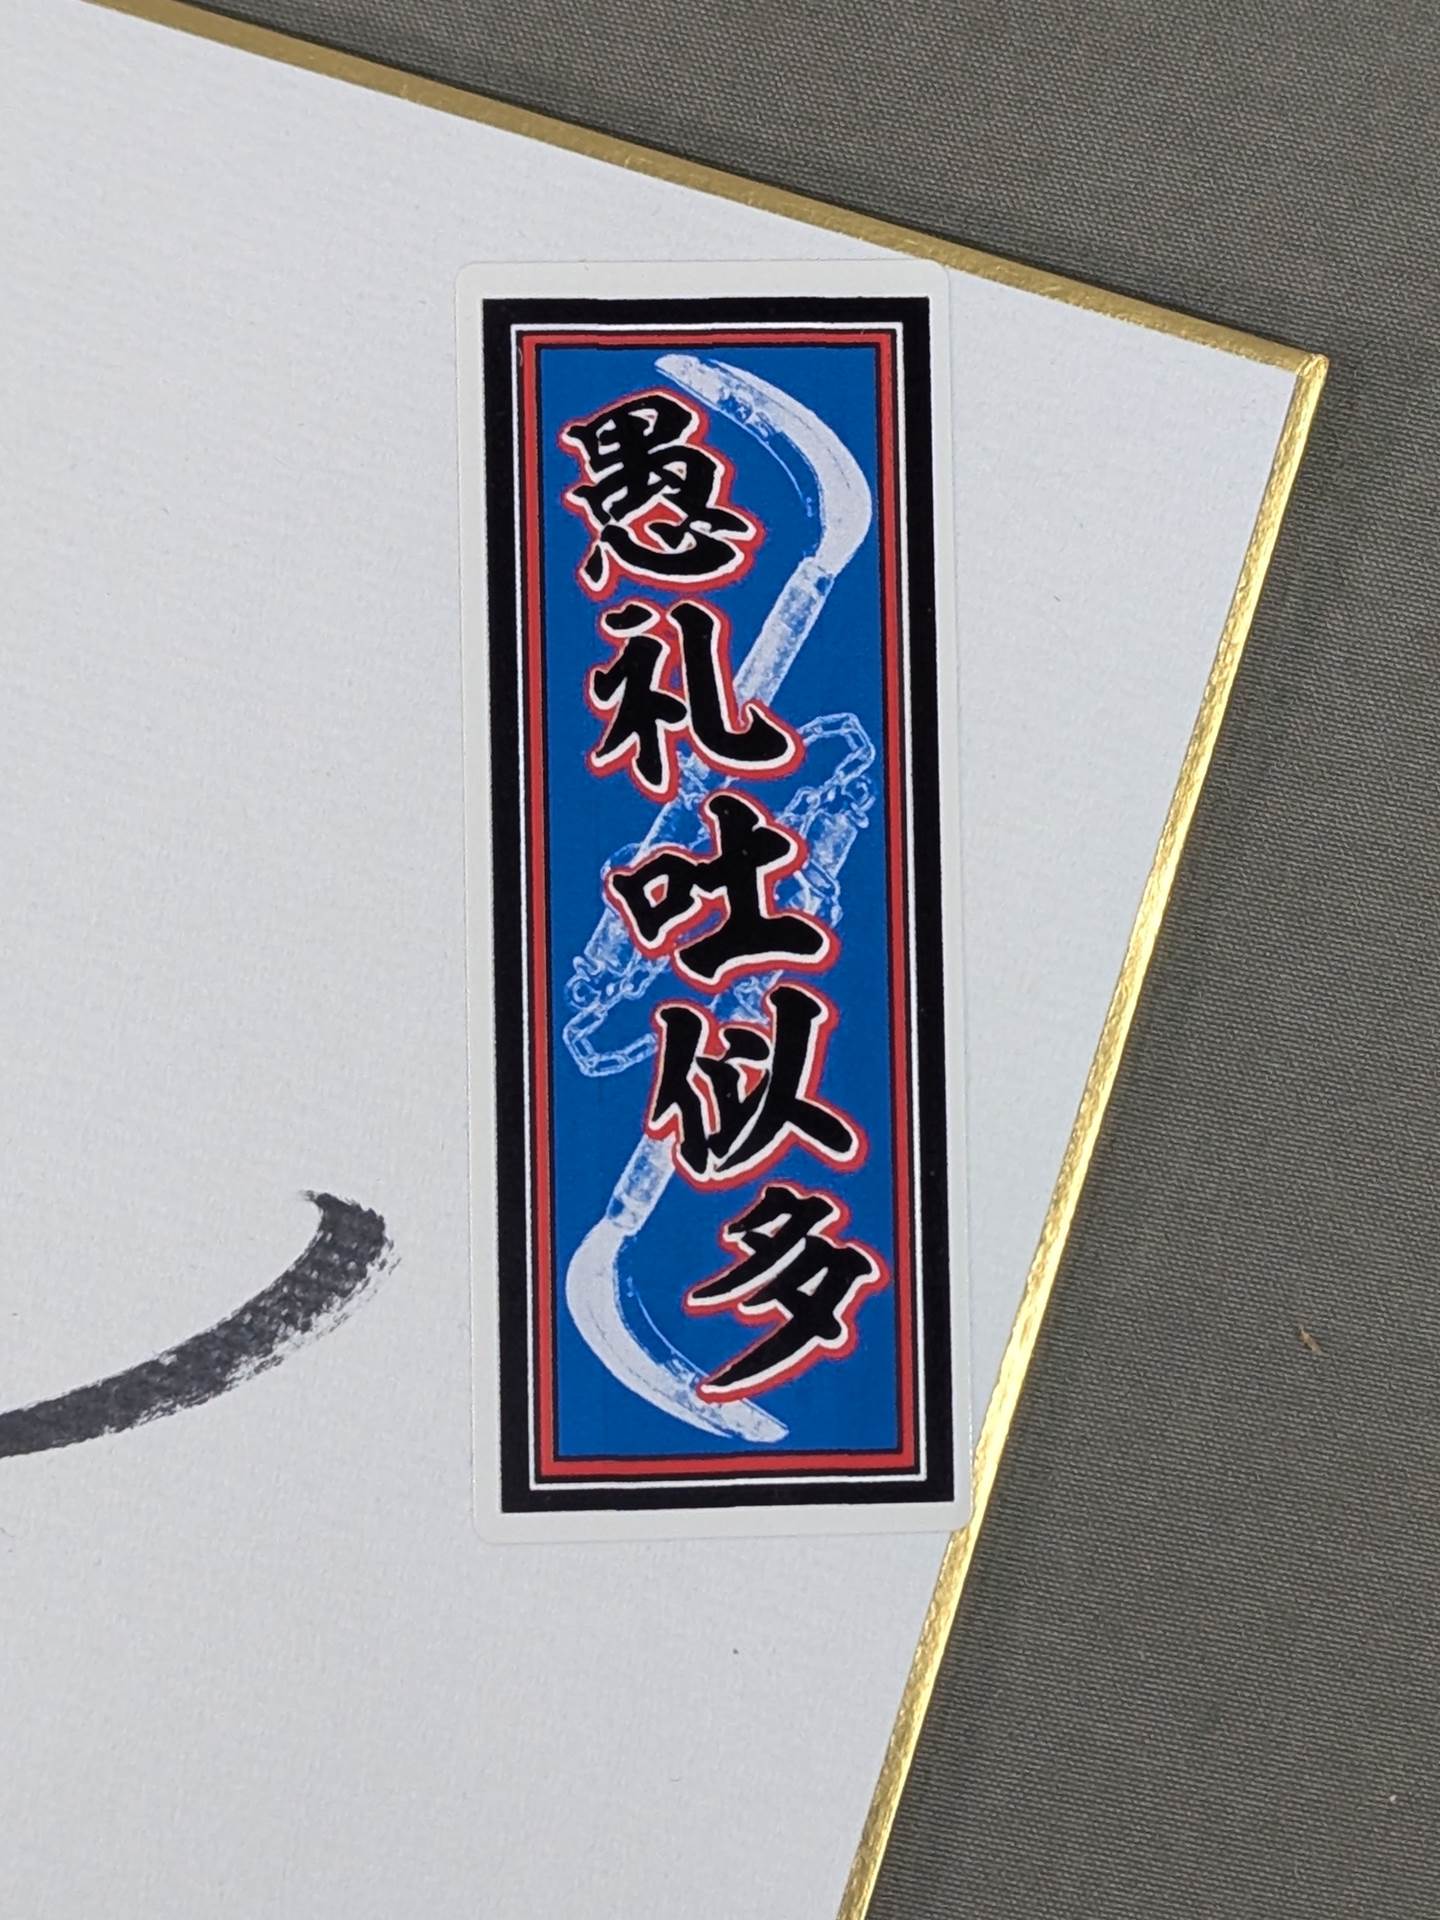 愚礼吐似多